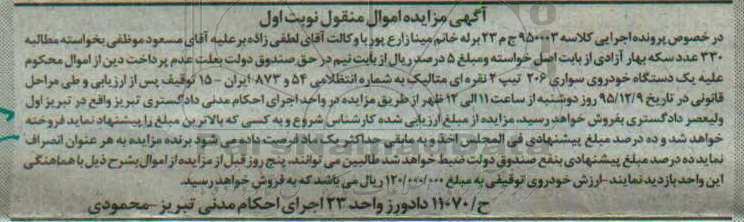 آگهی مزایده اموال منقول نوبت اول
در خصوص پرونده اجرایی کلاسه ۹۵۰۰۰۳ ج م ۲۳ بر له خانم مینا زارع پور با وکالت آقای لطفی زاده بر علیه آقای مسعود موظفی بخواسته مطالبه
۳۳۰ عدد سکه بهار آزادی از بابت اصل خواسته و مبلغ ۵ درصد ریال از بابت نیم در حق صندوق دولت بعلت عدم پرداخت دین از اموال محکوم
علیه یک دستگاه خودروی سواری ۲۰۶ تیپ ۲ نقره ای متالیک به شماره انتظامی ۵۴ و ۸۷۳ ایران - ۱۵ توقیف پس از ارزیابی و طی مراحل
قانونی در تاریخ ۹۵/۱۲/۹ روز دوشنبه از ساعت ۱۱ الی ۱۲ ظهر از طریق مزایده در واحد اجرای احکام مدنی دادگستری تبریز واقع در تبریز اول
ولیعصر دادگستری بفروش خواهد رسید، مزایده از مبلغ ارزیابی شده کارشناس شروع و به کسی که بالاترین مبلغ را پیشنهاد نماید فروخته
خواهد شد و ده درصد مبلغ پیشنهادی فی المجلس اخذ و به مابقی حداکثر یک ماه فرصت داده می شود برنده مزایده به هر عنوان انصراف
نماید ده درصد مبلغ پیشنهادی بنفع صندوق دولت ضبط خواهد شد طالبین می توانند، پنج روز قبل از مزایده از اموال بشرح ذیل با هماهنگی
این واحد بازدید نمایند-ارزش خودروی توقیفی به مبلغ ۱۲۰/۰۰۰/۰۰۰ ریال می باشد که به فروش خواهد رسید.
ح/۱۱۰۷۰ دادورز واحد ۲۳ اجرای احکام مدنی تبریز-محمودی